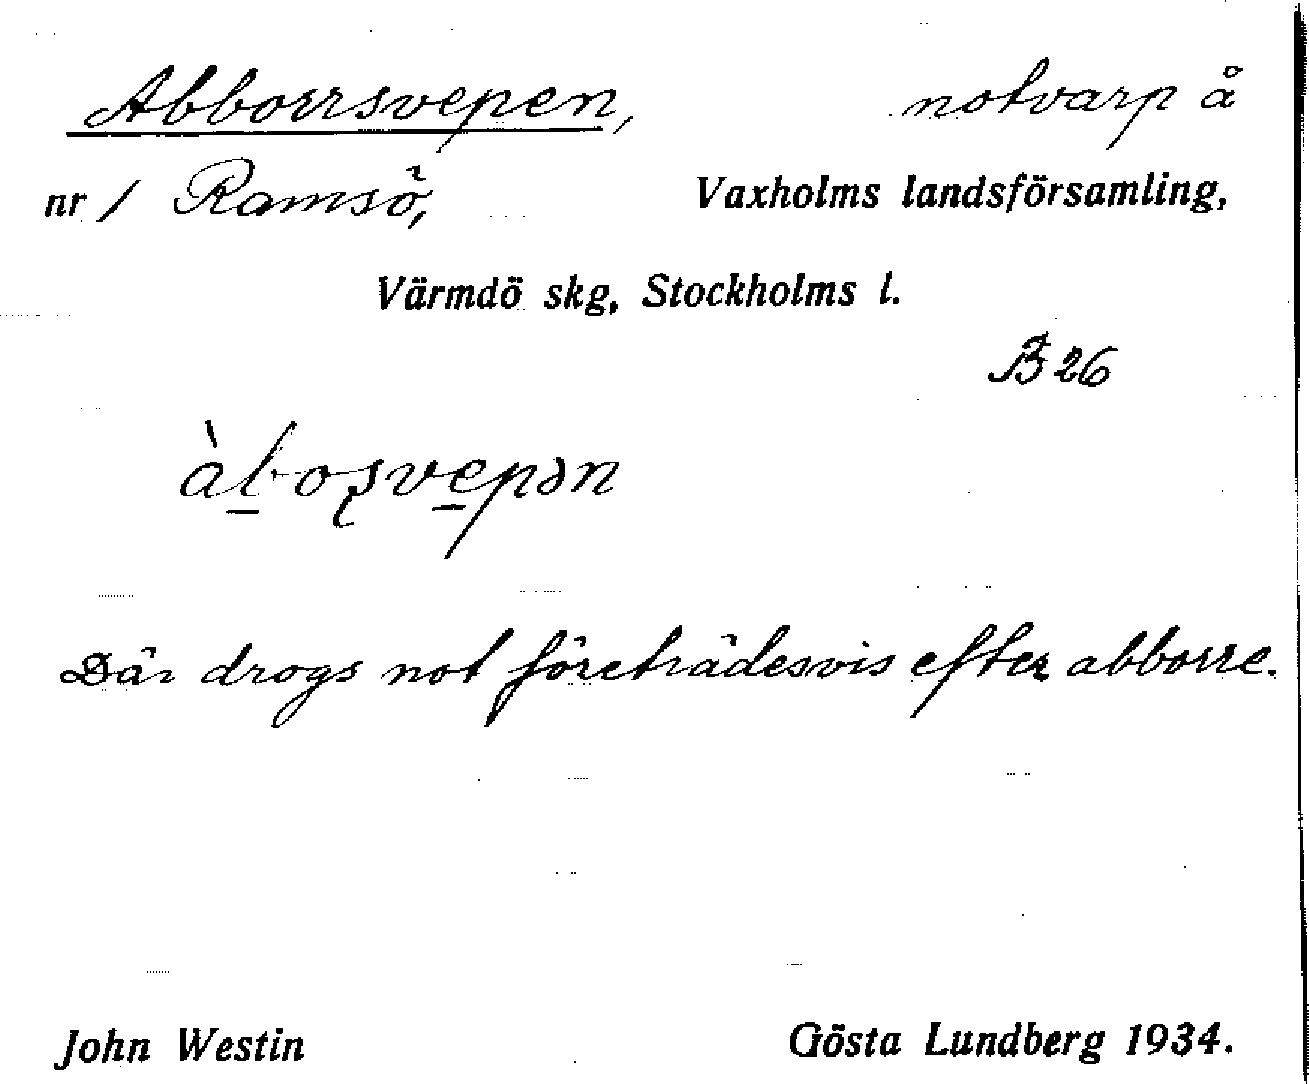 Abborrsvepen, notvarp å
nr 1 Ramsö, Vaxholms landsförsamling,
Värmdö skg, Stockholms l.
B 26
àb̲oʂve̲pən
Där drogs not företrädesvis efter abborre.
John Westin Gösta Lundberg 1934.